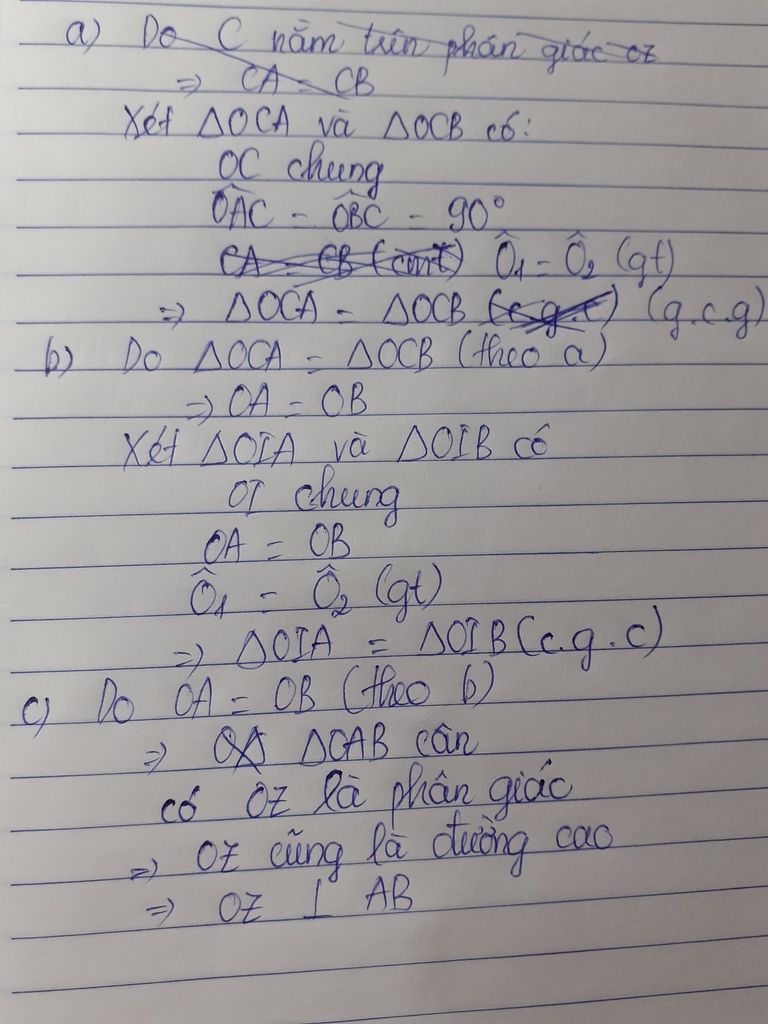 a) Do C nằm trên phân giác oz
=> CA = CB
Xét ΔOCA và ΔOCB có:
OC chung
OAC̑ = OBC̑ = 90°
CA = CB (cmt) Ô1 = Ô2 (gt)
=> ΔOCA = ΔOCB (c.g.c) (g.c.g)
b) Do ΔOCA = ΔOCB (theo a)
=> OA = OB
Xét ΔOIA và ΔOIB có
OI chung
OA = OB
Ô1 = Ô2 (gt)
=> ΔOIA = ΔOIB (c.g.c)
c) Do OA = OB (theo b)
=> ΔOAB cân
có OZ là phân giác
=> OZ cũng là đường cao
=> OZ ⊥ AB